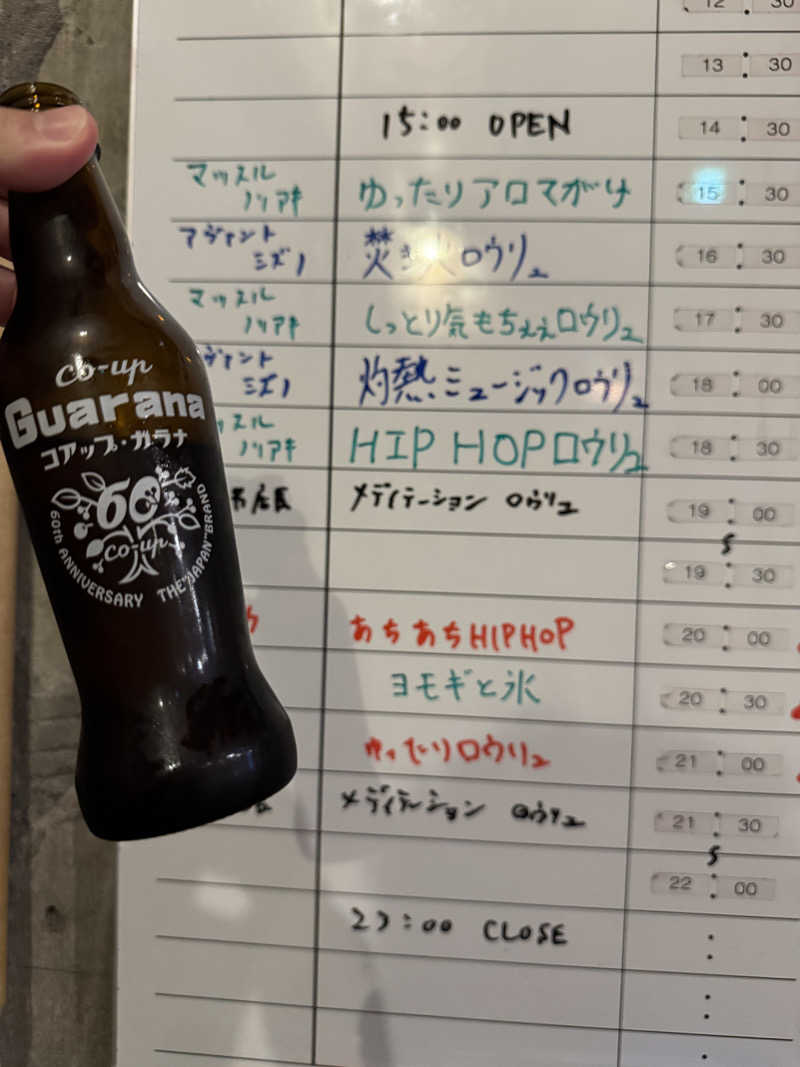 12 30
13 : 30
15:00 OPEN 14 : 30
マッスル
ノリアキ ゆったりアロマがけ 15 : 30
アヴァント
ミズノ 焚き火ロウリュ 16 : 30
マッスル
ノリアキ しっとり気もちぇぇロウリュ 17 : 30
ヴァント
ミズノ 灼熱ミュージックロウリュ 18 : 00
ッスル
ノリアキ HIP HOPロウリュ 18 : 30
店長 メディテーション ロウリュ 19 : 00
19 : 30
あちあちHIPHOP 20 : 00
ヨモギと氷 20 : 30
ゆったりロウリュ 21 : 00
メディテーション ロウリュ 21 : 30
22 : 00
23:00 CLOSE
co-up
Guarana
コアップ・ガラナ
60
co-up
60th ANNIVERSARY THE "JAPAN" BRAND